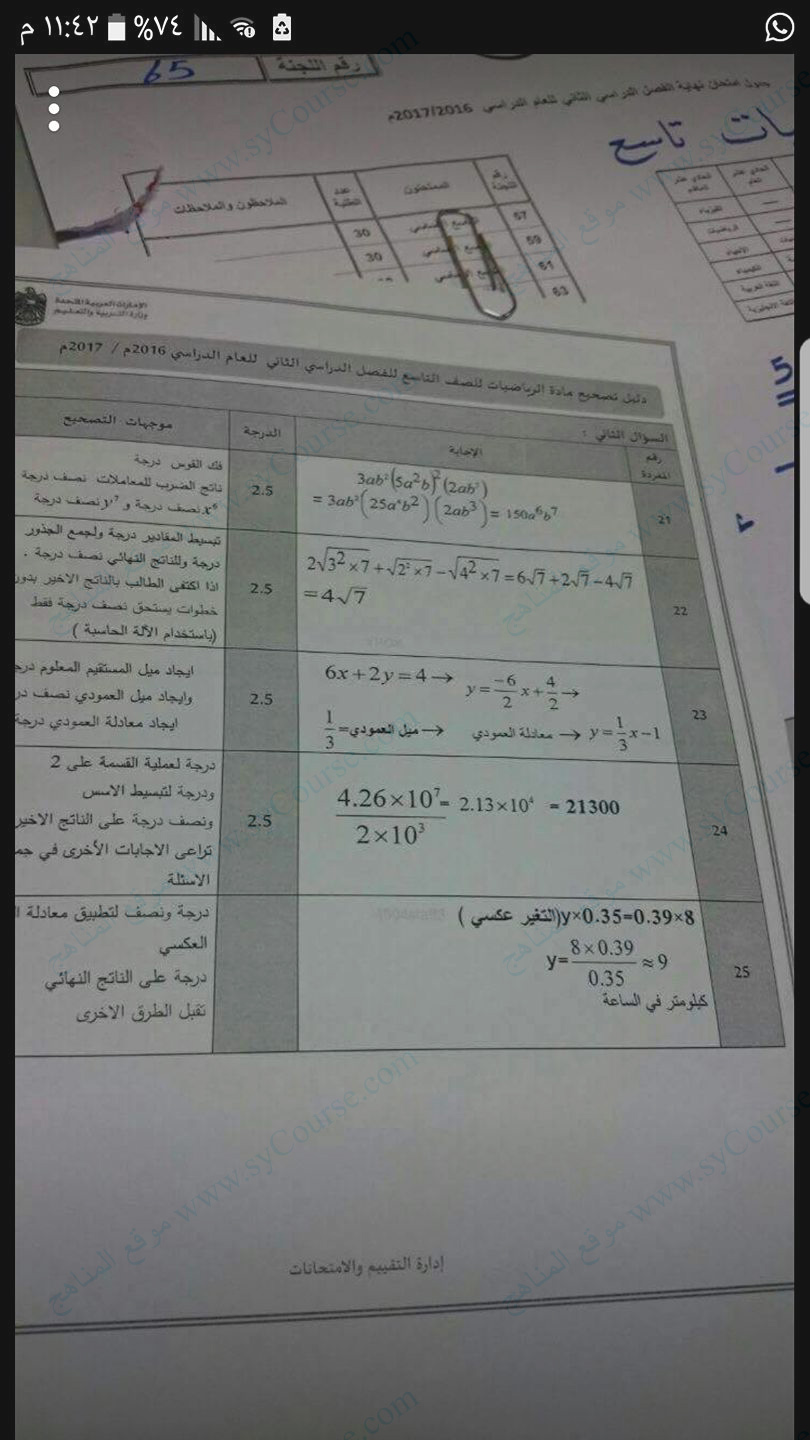 م ١١:٤٢ %٧٤
رقم اللجنة 65
جدول امتحان نهاية الفصل الدراسي الثاني للعام الدراسي 2017/2016م
تاسع
رقم اللجنة الممتحنون عدد الطلبة الملاحظون والملاحظات
57 30
59 30
61
63
الفيزياء
الرياضيات
الأحياء
الكيمياء
اللغة العربية
اللغة الانجليزية
الإمارات العربية المتحدة
وزارة التربية والتعليم
دليل تصحيح مادة الرياضيات للصف التاسع للفصل الدراسي الثاني للعام الدراسي 2016م / 2017م
السؤال الثاني :
رقم المفردة الإجابة الدرجة موجهات التصحيح
21
3ab²(5a²b)²(2ab³)
= 3ab²(25a⁴b²)(2ab³) = 150a⁶b⁷
2.5
فك القوس درجة
ناتج الضرب للمعاملات نصف درجة
x⁶ نصف درجة و y⁷ نصف درجة
22
2√3²×7 + √2²×7 − √4²×7 = 6√7 + 2√7 − 4√7
= 4√7
2.5
تبسيط المقادير درجة ولجمع الجذور
درجة وللناتج النهائي نصف درجة .
اذا اكتفى الطالب بالناتج الاخير بدون
خطوات يستحق نصف درجة فقط
(باستخدام الآلة الحاسبة )
23
6x+2y=4 → y = −6/2 x + 4/2 →
1/3 = ميل العمودي → معادلة العمودي → y = 1/3 x − 1
2.5
ايجاد ميل المستقيم المعلوم
وايجاد ميل العمودي نصف
ايجاد معادلة العمودي درجة
24
4.26×10⁷ / 2×10³ = 2.13×10⁴ = 21300
2.5
درجة لعملية القسمة على 2
ودرجة لتبسيط الاسس
ونصف درجة على الناتج الاخير
تراعى الاجابات الأخرى في
الاسئلة
25
y×0.35=0.39×8(التغير عكسي )
y = 8×0.39 / 0.35 ≈ 9
كيلومتر في الساعة
درجة ونصف لتطبيق معادلة
العكسي
درجة على الناتج النهائي
تقبل الطرق الاخرى
إدارة التقييم والامتحانات
موقع المناهج www.syCourse.com